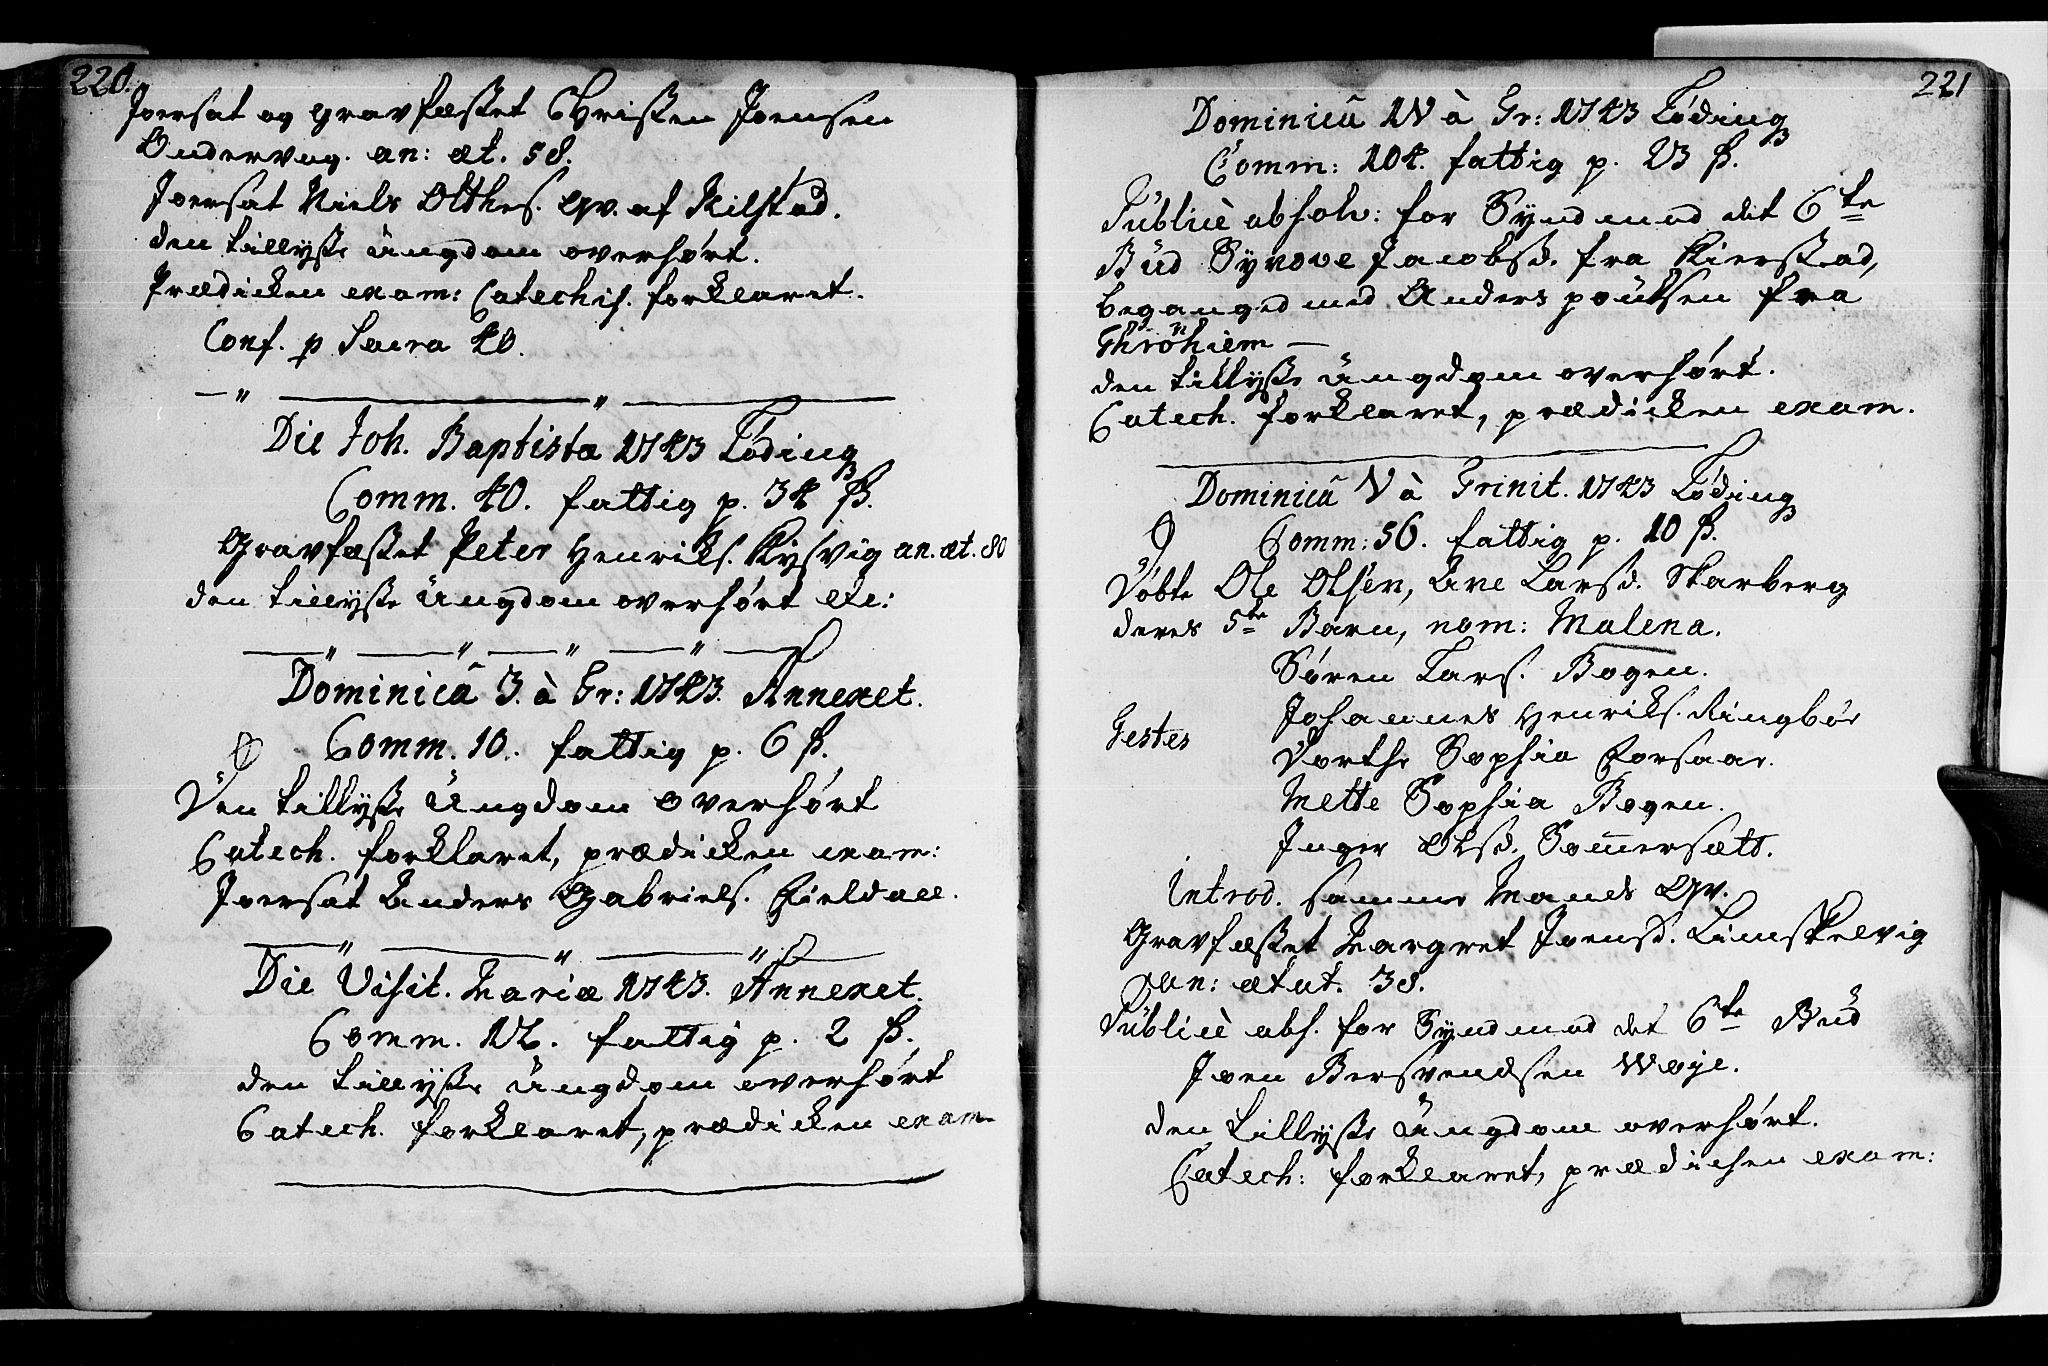 220.
Joersat og gravfæstet Christen Joensen
Undervag. an: æt. 58.
Joersat Niels Olthes. Qv. af Kilstad.
den tillyste ungdom overhørt.
Prædicken exam: Catechis. forklaret.
Conf. p Sacra 40.
Die Joh. Baptista 1743 Løding
Comm. 40. fattig p. 34 ß.
Gravfæstet Peter Henriks. Kysvig an. æt. 80
den tillyste ungdom overhørt etc:
Dominicâ 3. à Tr: 1743. Annexet.
Comm. 10. fattig p. 6 ß.
Den tillyste ungdom overhørt
Catech. forklaret, prædicken exam:
Joersat Anders Gabriels. Fieldall.
Die Visit. Mariæ 1743. Annexet.
Comm. 12. fattig p. 2 ß.
den tillyste ungdom overhørt
Catech. forklaret, prædicken exam
221
Dominicâ IV à Tr: 1743 Løding
Comm: 104. fattig p. 23 ß.
Publicè absolv: for Synd mod det 6te
Bud Synove Jacobsd. fra Kierstad,
beganged med Anders poulsen fra
Throñhiem
den tillyste ungdom overhørt.
Catech. forklaret, prædicken exam.
Dominicâ V à Trinit. 1743 Løding
Comm: 56. fattig p. 10 ß.
Døbte Ole Olsen, Ane Larsd. Skarberg
deres 5te Barn, nom: Malena.
Søren Lars. Bogen.
Johannes Henriks. Ringbøe
Testes
Dorthe Sophia Forsaae.
Mette Sophia Bogen.
Inger Olsd. Somersætt.
Introd. samme Mands Qv.
Gravfæstet Margret Joensd. Limskelvig
an: ætat. 38.
Publicè abs. for Synd mod det 6te Bud
Joen Bersvendsen Woje.
den tillyste ungdom overhørt.
Catech: forklaret, prædicken exam: